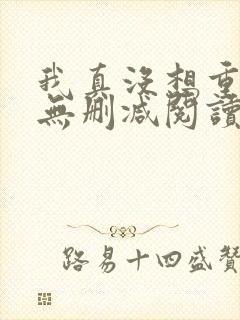 我真沒想重
無刪減閱讀
路易十四盛贊